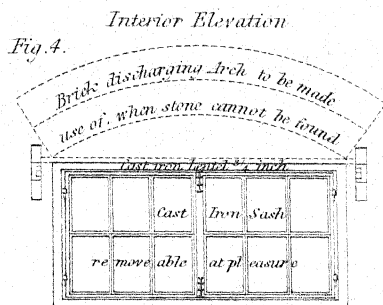 Interior Elevation
Fig. 4.
Brick discharging Arch to be made
use of, when stone cannot be found
Cast iron lentel 3/4 inch
Cast Iron Sash
removeable at pleasure